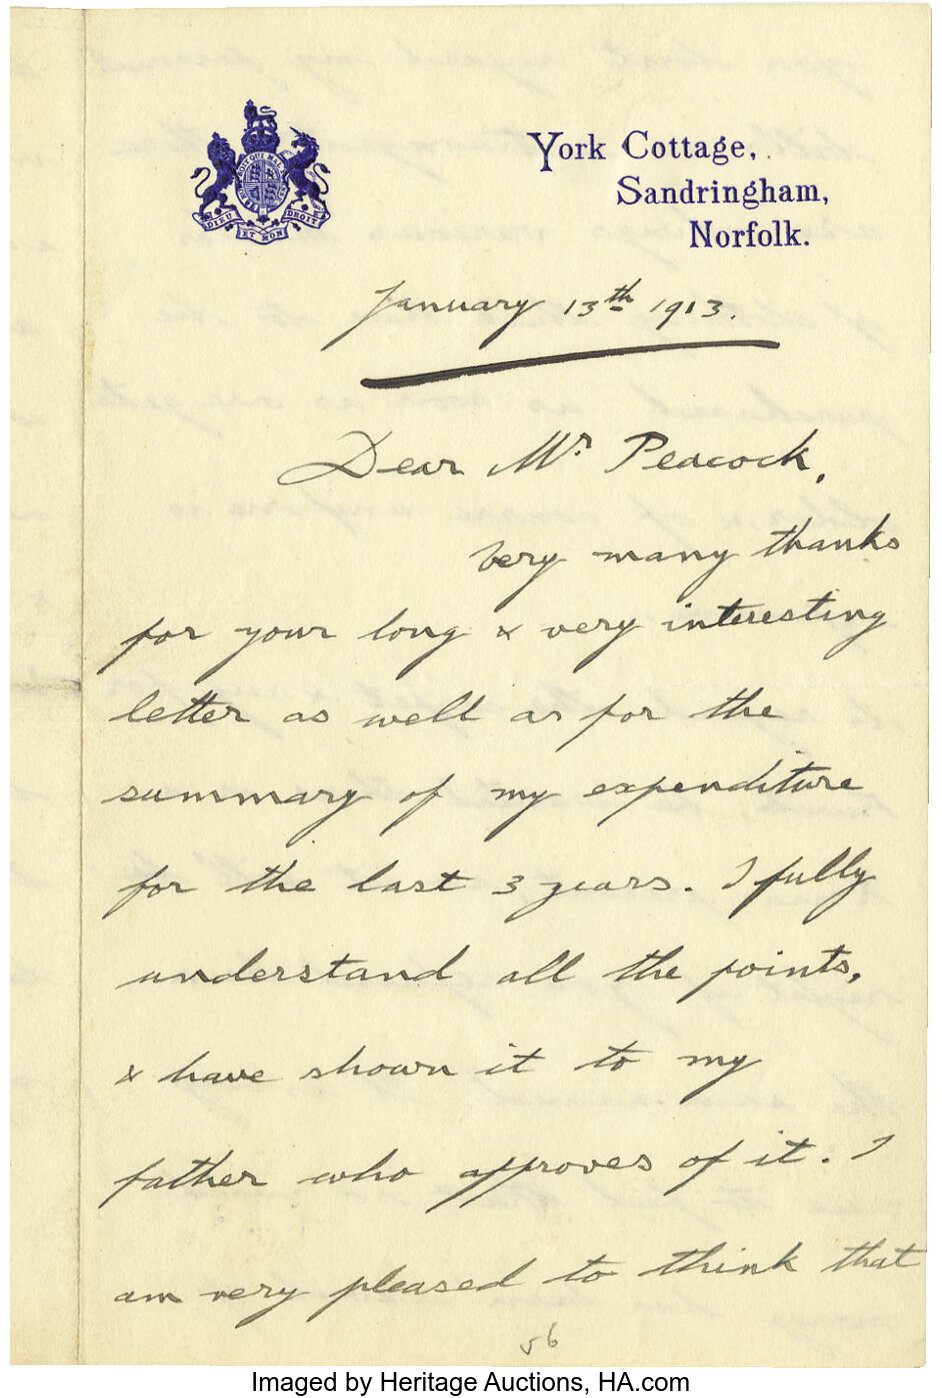 HONI SOIT QUI MAL Y PENSE
DIEU ET MON DROIT
York Cottage,
Sandringham,
Norfolk.
January 13th 1913.
Dear Mr Peacock,
very many thanks
for your long & very interesting
letter as well as for the
summary of my expenditure
for the last 3 years. I fully
understand all the points,
& have shown it to my
father who approves of it. I
am very pleased to think that
56
Imaged by Heritage Auctions, HA.com